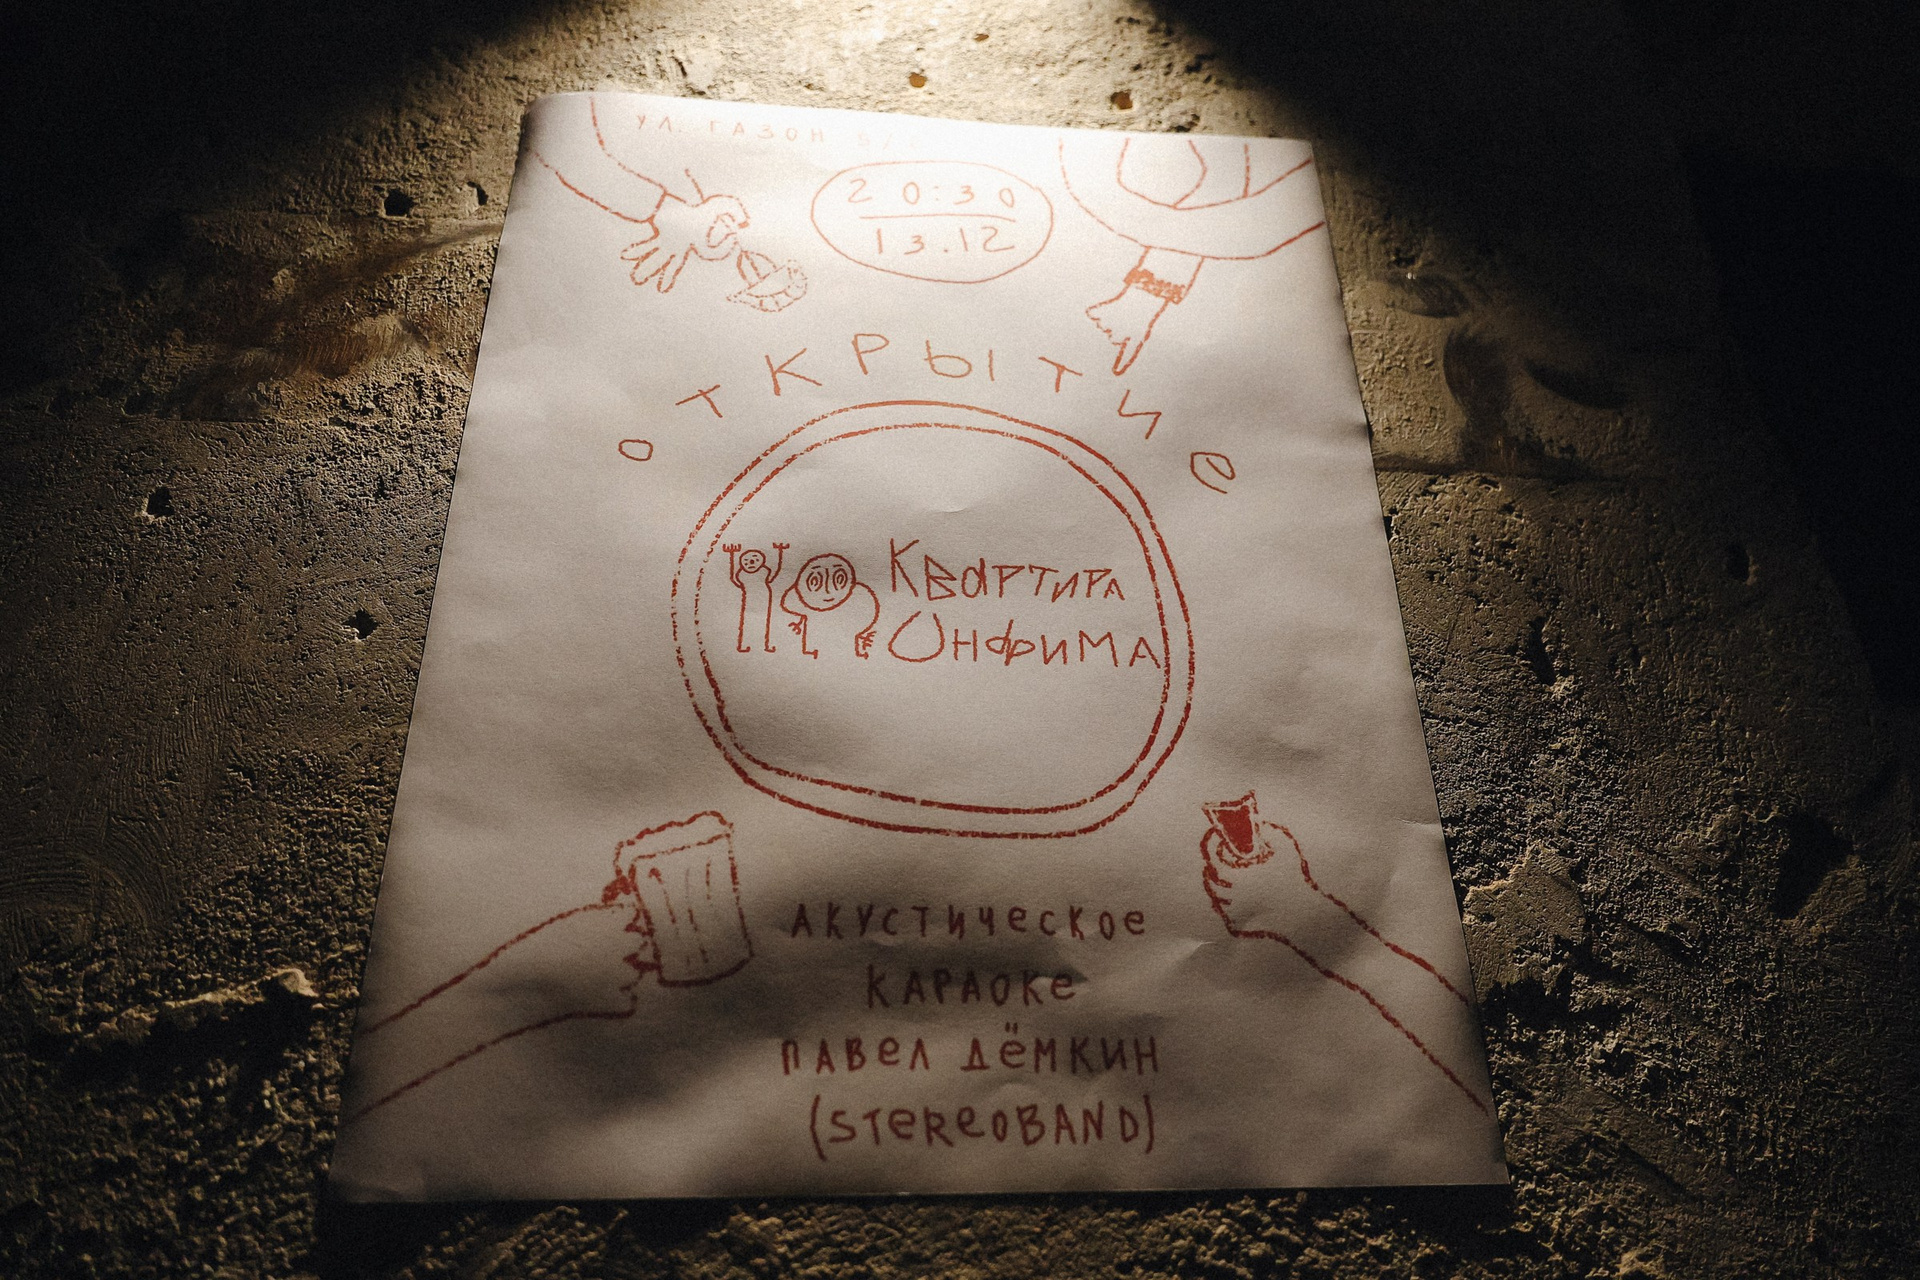 УЛ. ГАЗОН 5/
20:30
13.12
ОТКРЫТИЕ
КВАРТИРА
ОНФИМА
АКУСТИЧЕСКОЕ
КАРАОКЕ
ПАВЕЛ ДЁМКИН
(STEREOBAND)